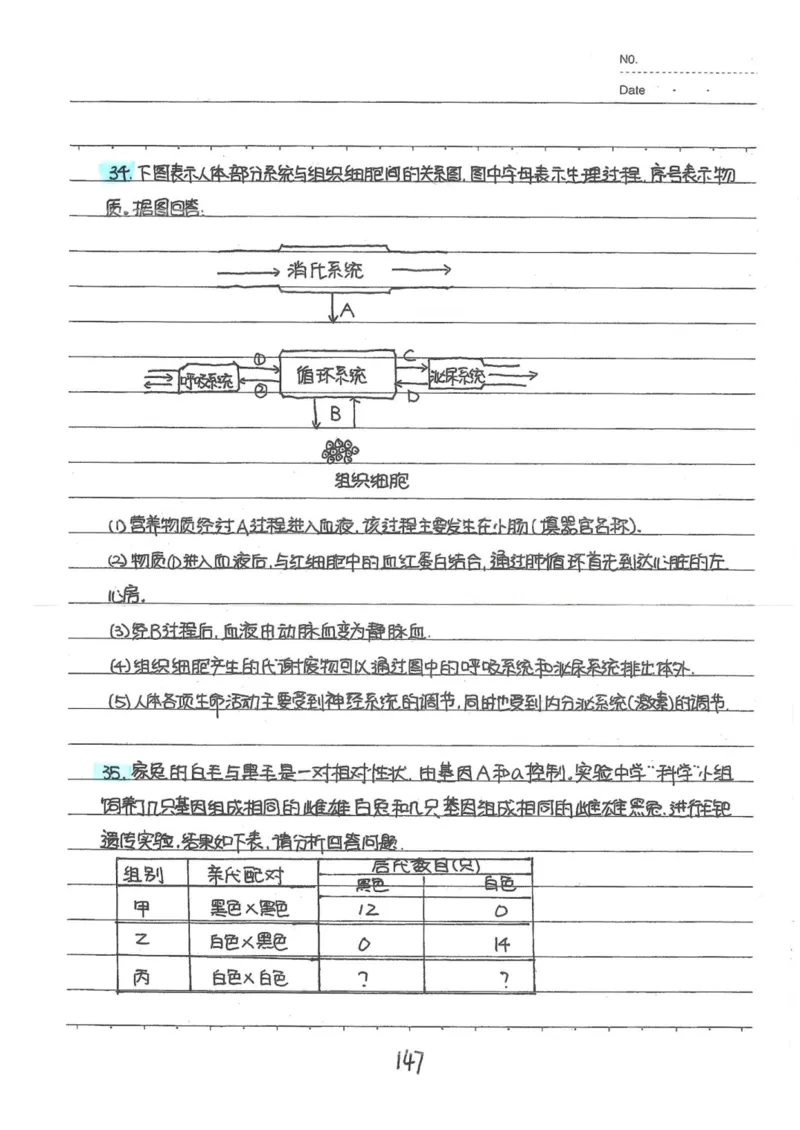 NO.
Date
34.下图表示人体部分系统与组织细胞间的关系图,图中字母表示生理过程,序号表示物
质。据图回答:
消化系统
A
① C
呼吸系统 循环系统 泌尿系统
② D
B
组织细胞
(1)营养物质经过A过程进入血液,该过程主要发生在小肠(填器官名称)。
(2)物质①进入血液后,与红细胞中的血红蛋白结合,通过肺循环首先到达心脏的左
心房。
(3)经B过程后,血液由动脉血变为静脉血.
(4)组织细胞产生的代谢废物可以通过图中的呼吸系统和泌尿系统排出体外.
(5)人体各项生命活动主要受到神经系统的调节,同时也受到内分泌系统(激素)的调节.
35.家兔的白毛与黑毛是一对相对性状,由基因A和a控制。实验中学“科学”小组
饲养了几只基因组成相同的雌雄白兔和几只基因组成相同的雌雄黑兔,进行毛色
遗传实验,结果如下表,请分析回答问题.
组别 亲代配对 后代数目(只)
黑色 白色
甲 黑色×黑色 12 0
乙 白色×黑色 0 14
丙 白色×白色 ? ?
147